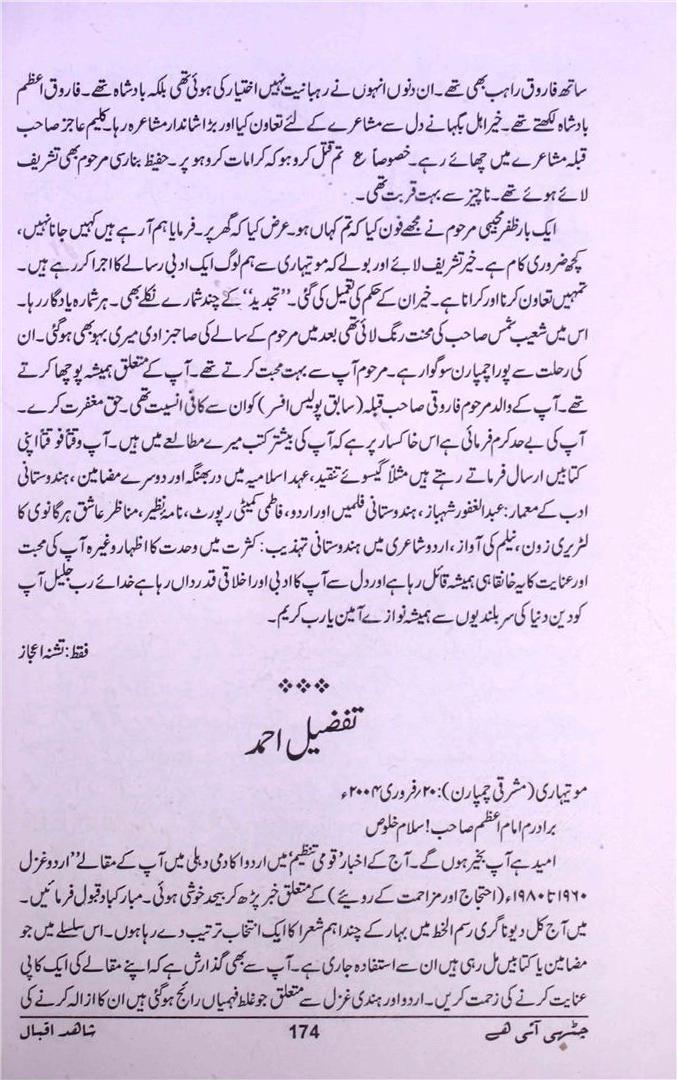 ساتھ فاروق راہب بھی تھے۔ ان دنوں انہوں نے رہبانیت نہیں اختیار کی ہوئی تھی بلکہ بادشاہ تھے۔ فاروق اعظم
بادشاہ لکھتے تھے۔ خیر اہل بگہا نے دل سے مشاعرے کے لئے تعاون کیا اور بڑا شاندار مشاعرہ رہا۔ کلیم عاجز صاحب
قبلہ مشاعرے میں چھائے رہے۔ خصوصاً ع تم قتل کرو ہو کہ کرامات کرو ہو پر۔ حفیظ بنارسی مرحوم بھی تشریف
لائے ہوئے تھے۔ ناچیز سے بہت قربت تھی۔
ایک بار ظفر مجیبی مرحوم نے مجھے فون کیا کہ تم کہاں ہو۔ عرض کیا کہ گھر پر۔ فرمایا ہم آرہے ہیں کہیں جانا نہیں،
کچھ ضروری کام ہے۔ خیر تشریف لائے اور بولے کہ موتیہاری سے ہم لوگ ایک ادبی رسالے کا اجرا کر رہے ہیں۔
تمہیں تعاون کرنا اور کرانا ہے۔ خیر ان کے حکم کی تعمیل کی گئی۔ ”تجدید“ کے چند شمارے نکلے بھی۔ ہر شمارہ یادگار رہا۔
اس میں شعیب شمس صاحب کی محنت رنگ لائی تھی بعد میں مرحوم کے سالے کی صاحبزادی میری بہو بھی ہوگئی۔ ان
کی رحلت سے پورا چمپارن سوگوار ہے۔ مرحوم آپ سے بہت محبت کرتے تھے۔ آپ کے متعلق ہمیشہ پوچھا کرتے
تھے۔ آپ کے والد مرحوم فاروقی صاحب قبلہ (سابق پولیس افسر) کو ان سے کافی انسیت تھی۔ حق مغفرت کرے۔
آپ کی بے حد کرم فرمائی ہے اس خاکسار پر ہے کہ آپ کی بیشتر کتب میرے مطالعے میں ہیں۔ آپ وقتاً فوقتاً اپنی
کتابیں ارسال فرماتے رہتے ہیں مثلاً گیسوئے تنقید، عہد اسلامیہ میں دربھنگہ اور دوسرے مضامین، ہندوستانی
ادب کے معمار: عبدالغفور شہباز، ہندوستانی فلمیں اور اردو، فاطمی کمیٹی رپورٹ، نامۂ نظیر، مناظر عاشق ہرگانوی کا
لٹریری زون، نیلم کی آواز، اردو شاعری میں ہندوستانی تہذیب: کثرت میں وحدت کا اظہار وغیرہ آپ کی محبت
اور عنایت کا یہ خانقاہی ہمیشہ قائل رہا ہے اور دل سے آپ کا ادبی اور اخلاقی قدرداں رہا ہے خدائے رب جلیل آپ
کو دین دنیا کی سربلندیوں سے ہمیشہ نوازے آمین یارب کریم۔
فقط: تشنہ اعجاز
تفضیل احمد
موتیہاری (مشرقی چمپارن): ۲۰؍فروری ۲۰۰۴ء
برادرم امام اعظم صاحب! سلام خلوص
امید ہے آپ بخیر ہوں گے۔ آج کے اخبار ’قومی تنظیم‘ میں اردو اکادمی دہلی میں آپ کے مقالے ”اردو غزل
۱۹۶۰ تا ۱۹۸۰ء (احتجاج اور مزاحمت کے رویئے) کے متعلق خبر پڑھ کر بیحد خوشی ہوئی۔ مبارکباد قبول فرمائیں۔
میں آج کل دیوناگری رسم الخط میں بہار کے چند اہم شعرا کا ایک انتخاب ترتیب دے رہا ہوں۔ اس سلسلے میں جو
مضامین یا کتابیں مل رہی ہیں ان سے استفادہ جاری ہے۔ آپ سے بھی گذارش ہے کہ اپنے مقالے کی ایک کاپی
عنایت کرنے کی زحمت کریں۔ اردو اور ہندی غزل سے متعلق جو غلط فہمیاں رائج ہوگئی ہیں ان کا ازالہ کرنے کی
چٹھی آئی ھے 174 شاھد اقبال